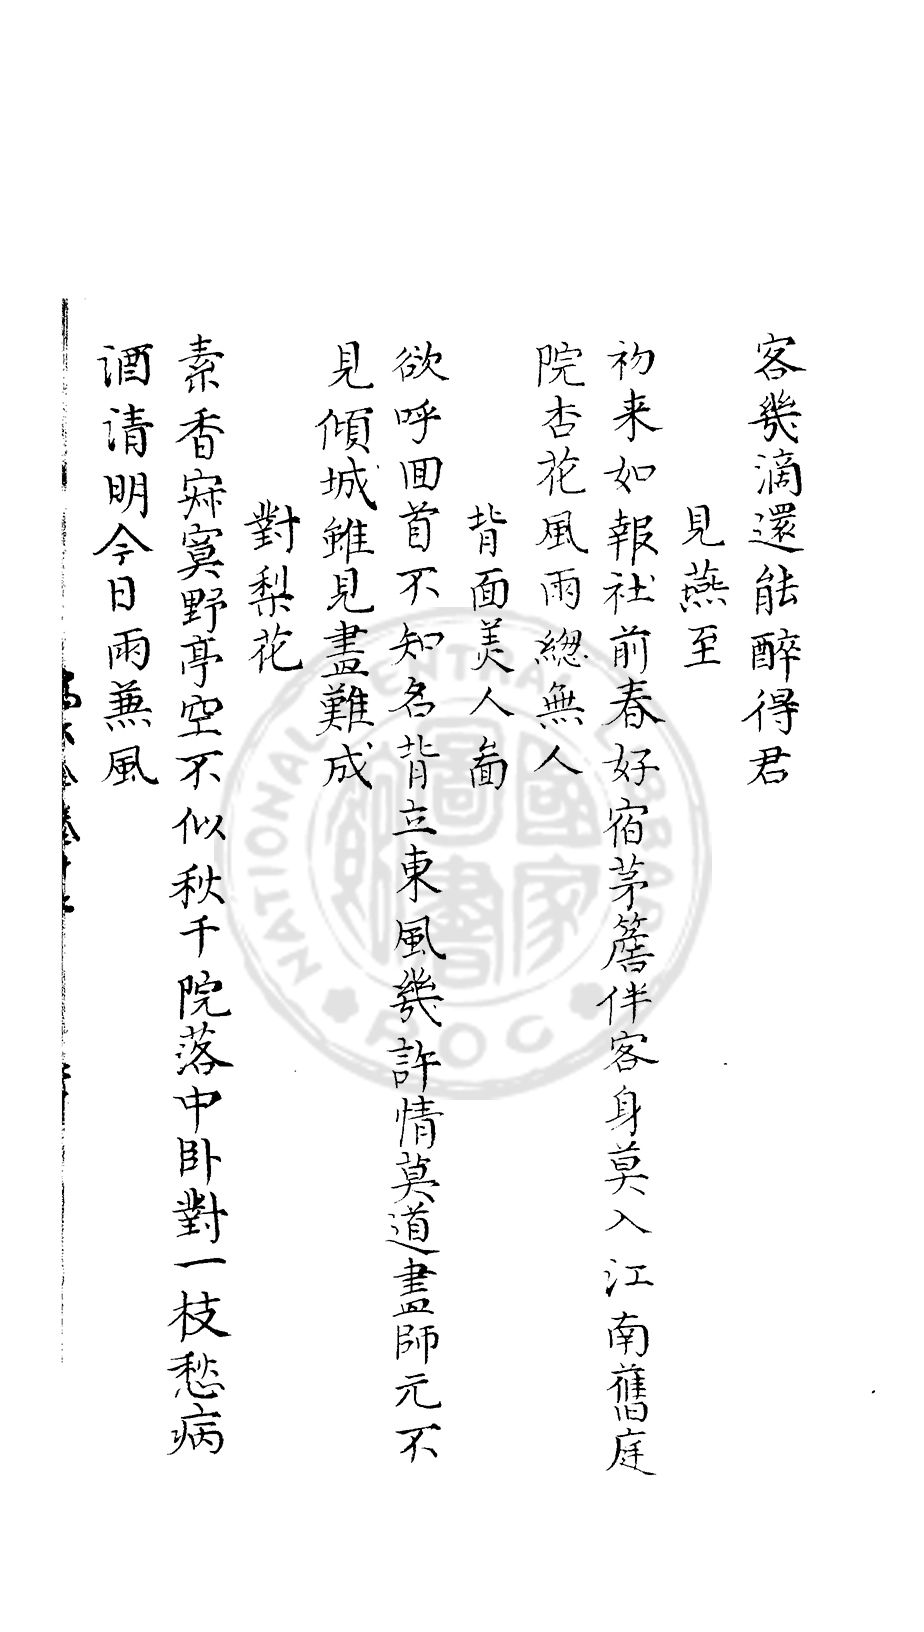 客幾滴還能醉得君
見燕至
初来如報社前春好宿茅簷伴客身莫入江南舊庭
院杏花風雨緫無人
背面美人啚
欲呼回首不知名背立東風幾許情莫道畫師元不
見傾城雖見畫難成
對梨花
素香寂寞野亭空不似秋千院落中卧對一枝愁病
酒清明今日雨蕪風
NATIONAL CENTRAL LIBRARY
ROC
國家圖書館